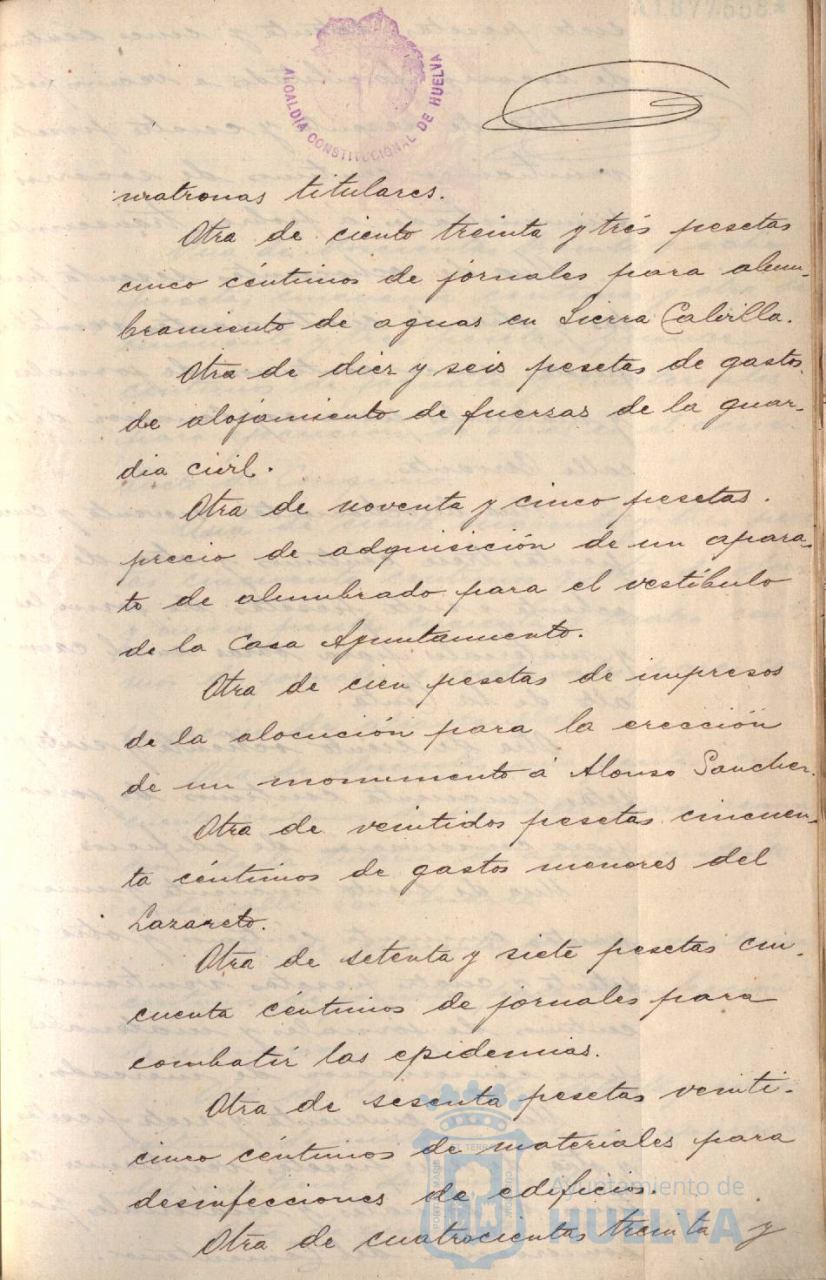 ALCALDÍA CONSTITUCIONAL DE HUELVA
matronas titulares.
Otra de ciento treinta y tres pesetas
cinco céntimos de jornales para alum-
bramiento de aguas en Sierra Calvilla.
Otra de diez y seis pesetas de gastos
de alojamiento de fuerzas de la guar-
dia civil.
Otra de noventa y cinco pesetas.
precio de adquisición de un apara-
to de alumbrado para el vestíbulo
de la Casa Ayuntamiento.
Otra de cien pesetas de impresos
de la alocución para la erección
de un monumento á Alonso Sanchez.
Otra de veintidos pesetas cincuen-
ta céntimos de gastos menores del
Lazareto.
Otra de setenta y siete pesetas cin-
cuenta céntimos de jornales para
combatir las epidemias.
Otra de sesenta pesetas veinti-
cinco céntimos de materiales para
desinfecciones de edificios.
Otra de cuatrocientas treinta y
Ayuntamiento de
HUELVA